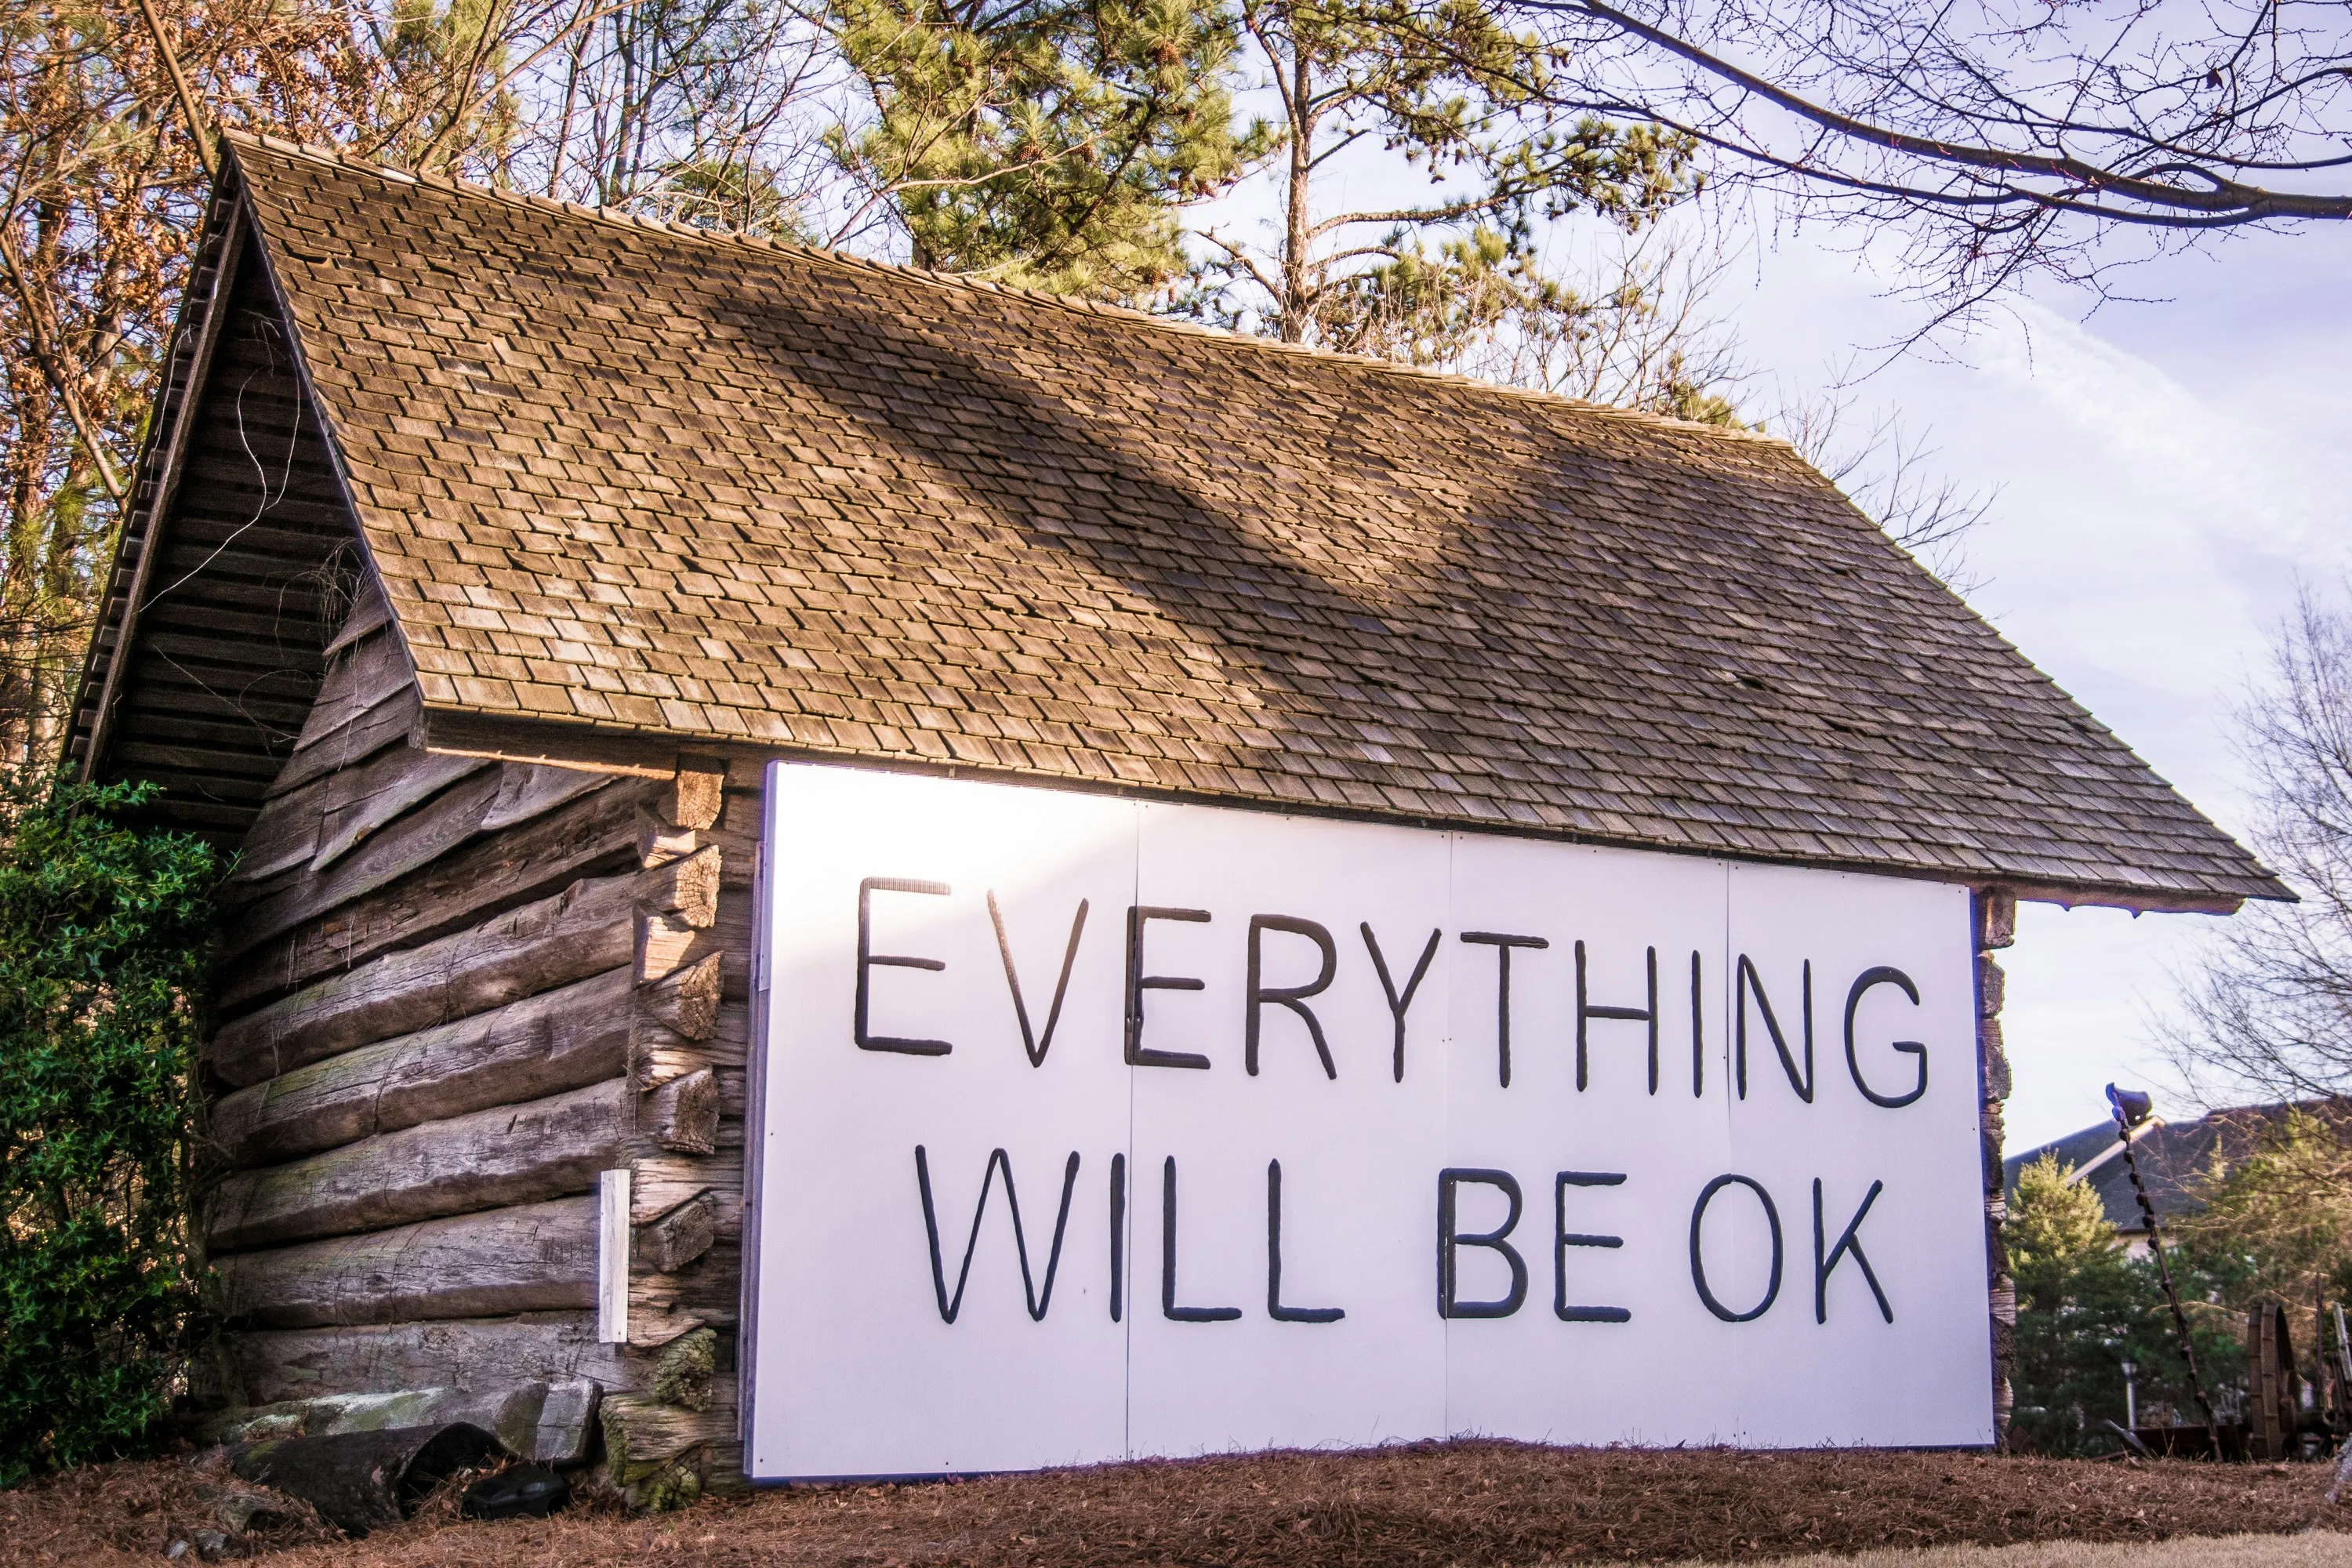 EVERYTHING
WILL BE OK